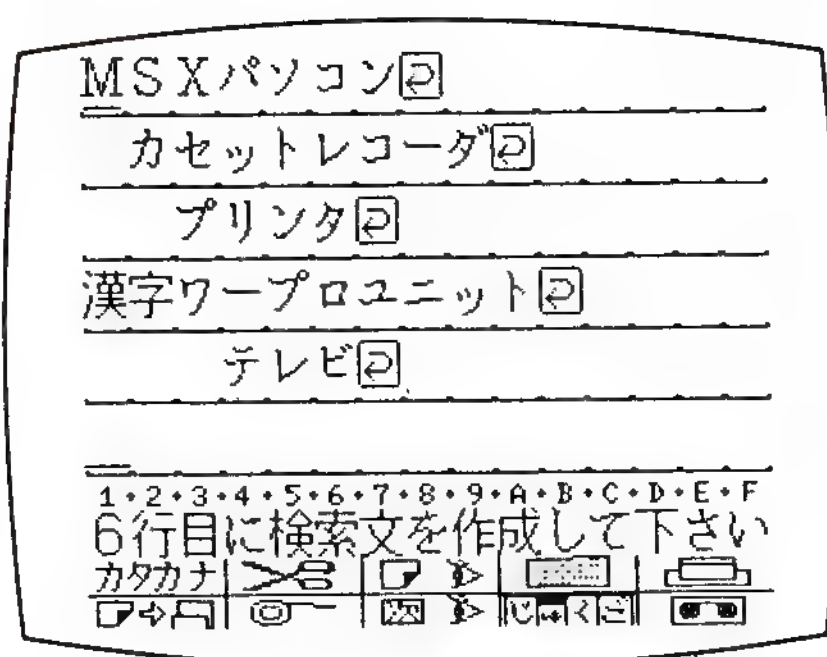 MSXパソコン
カセットレコーダ
プリンタ
漢字ワープロユニット
テレビ
1・2・3・4・5・6・7・8・9・A・B・C・D・E・F
6行目に検索文を作成して下さい
カタカナ
じゅくご